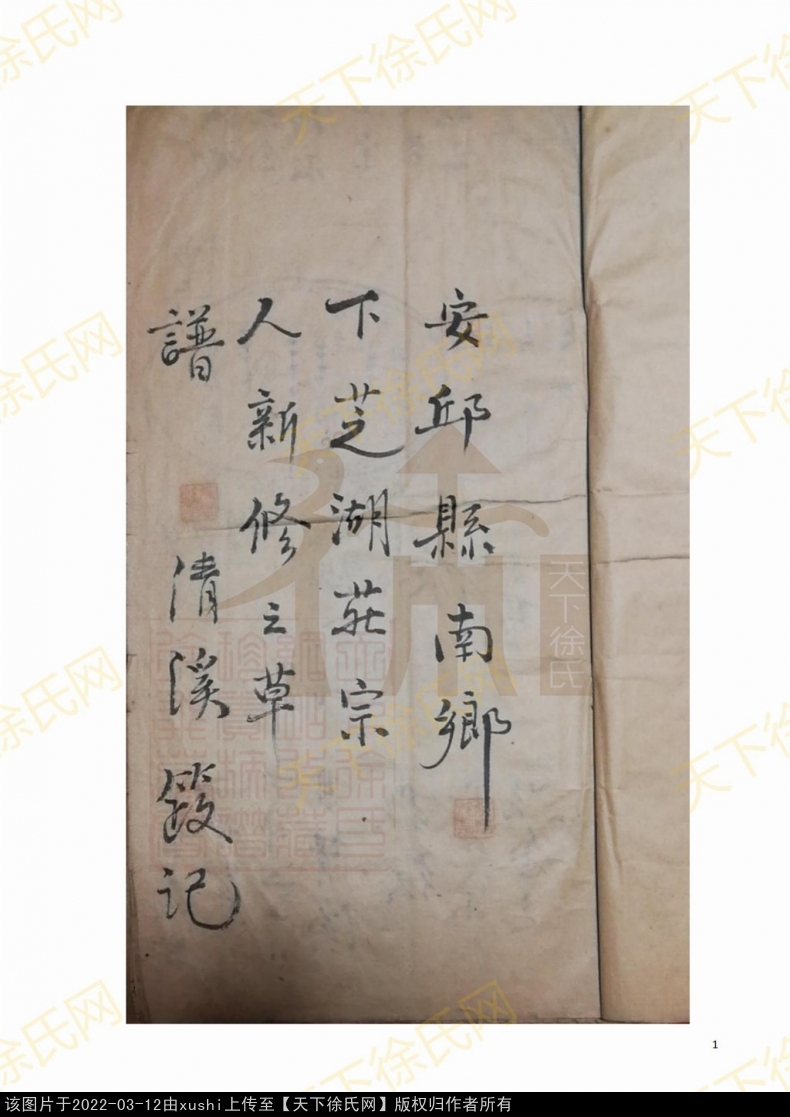 安邱縣南鄉
下芝湖莊宗
人新修之草
譜
清溪籛記
天下徐氏
天下徐氏网
1
该图片于2022-03-12由xushi上传至【天下徐氏网】版权归作者所有